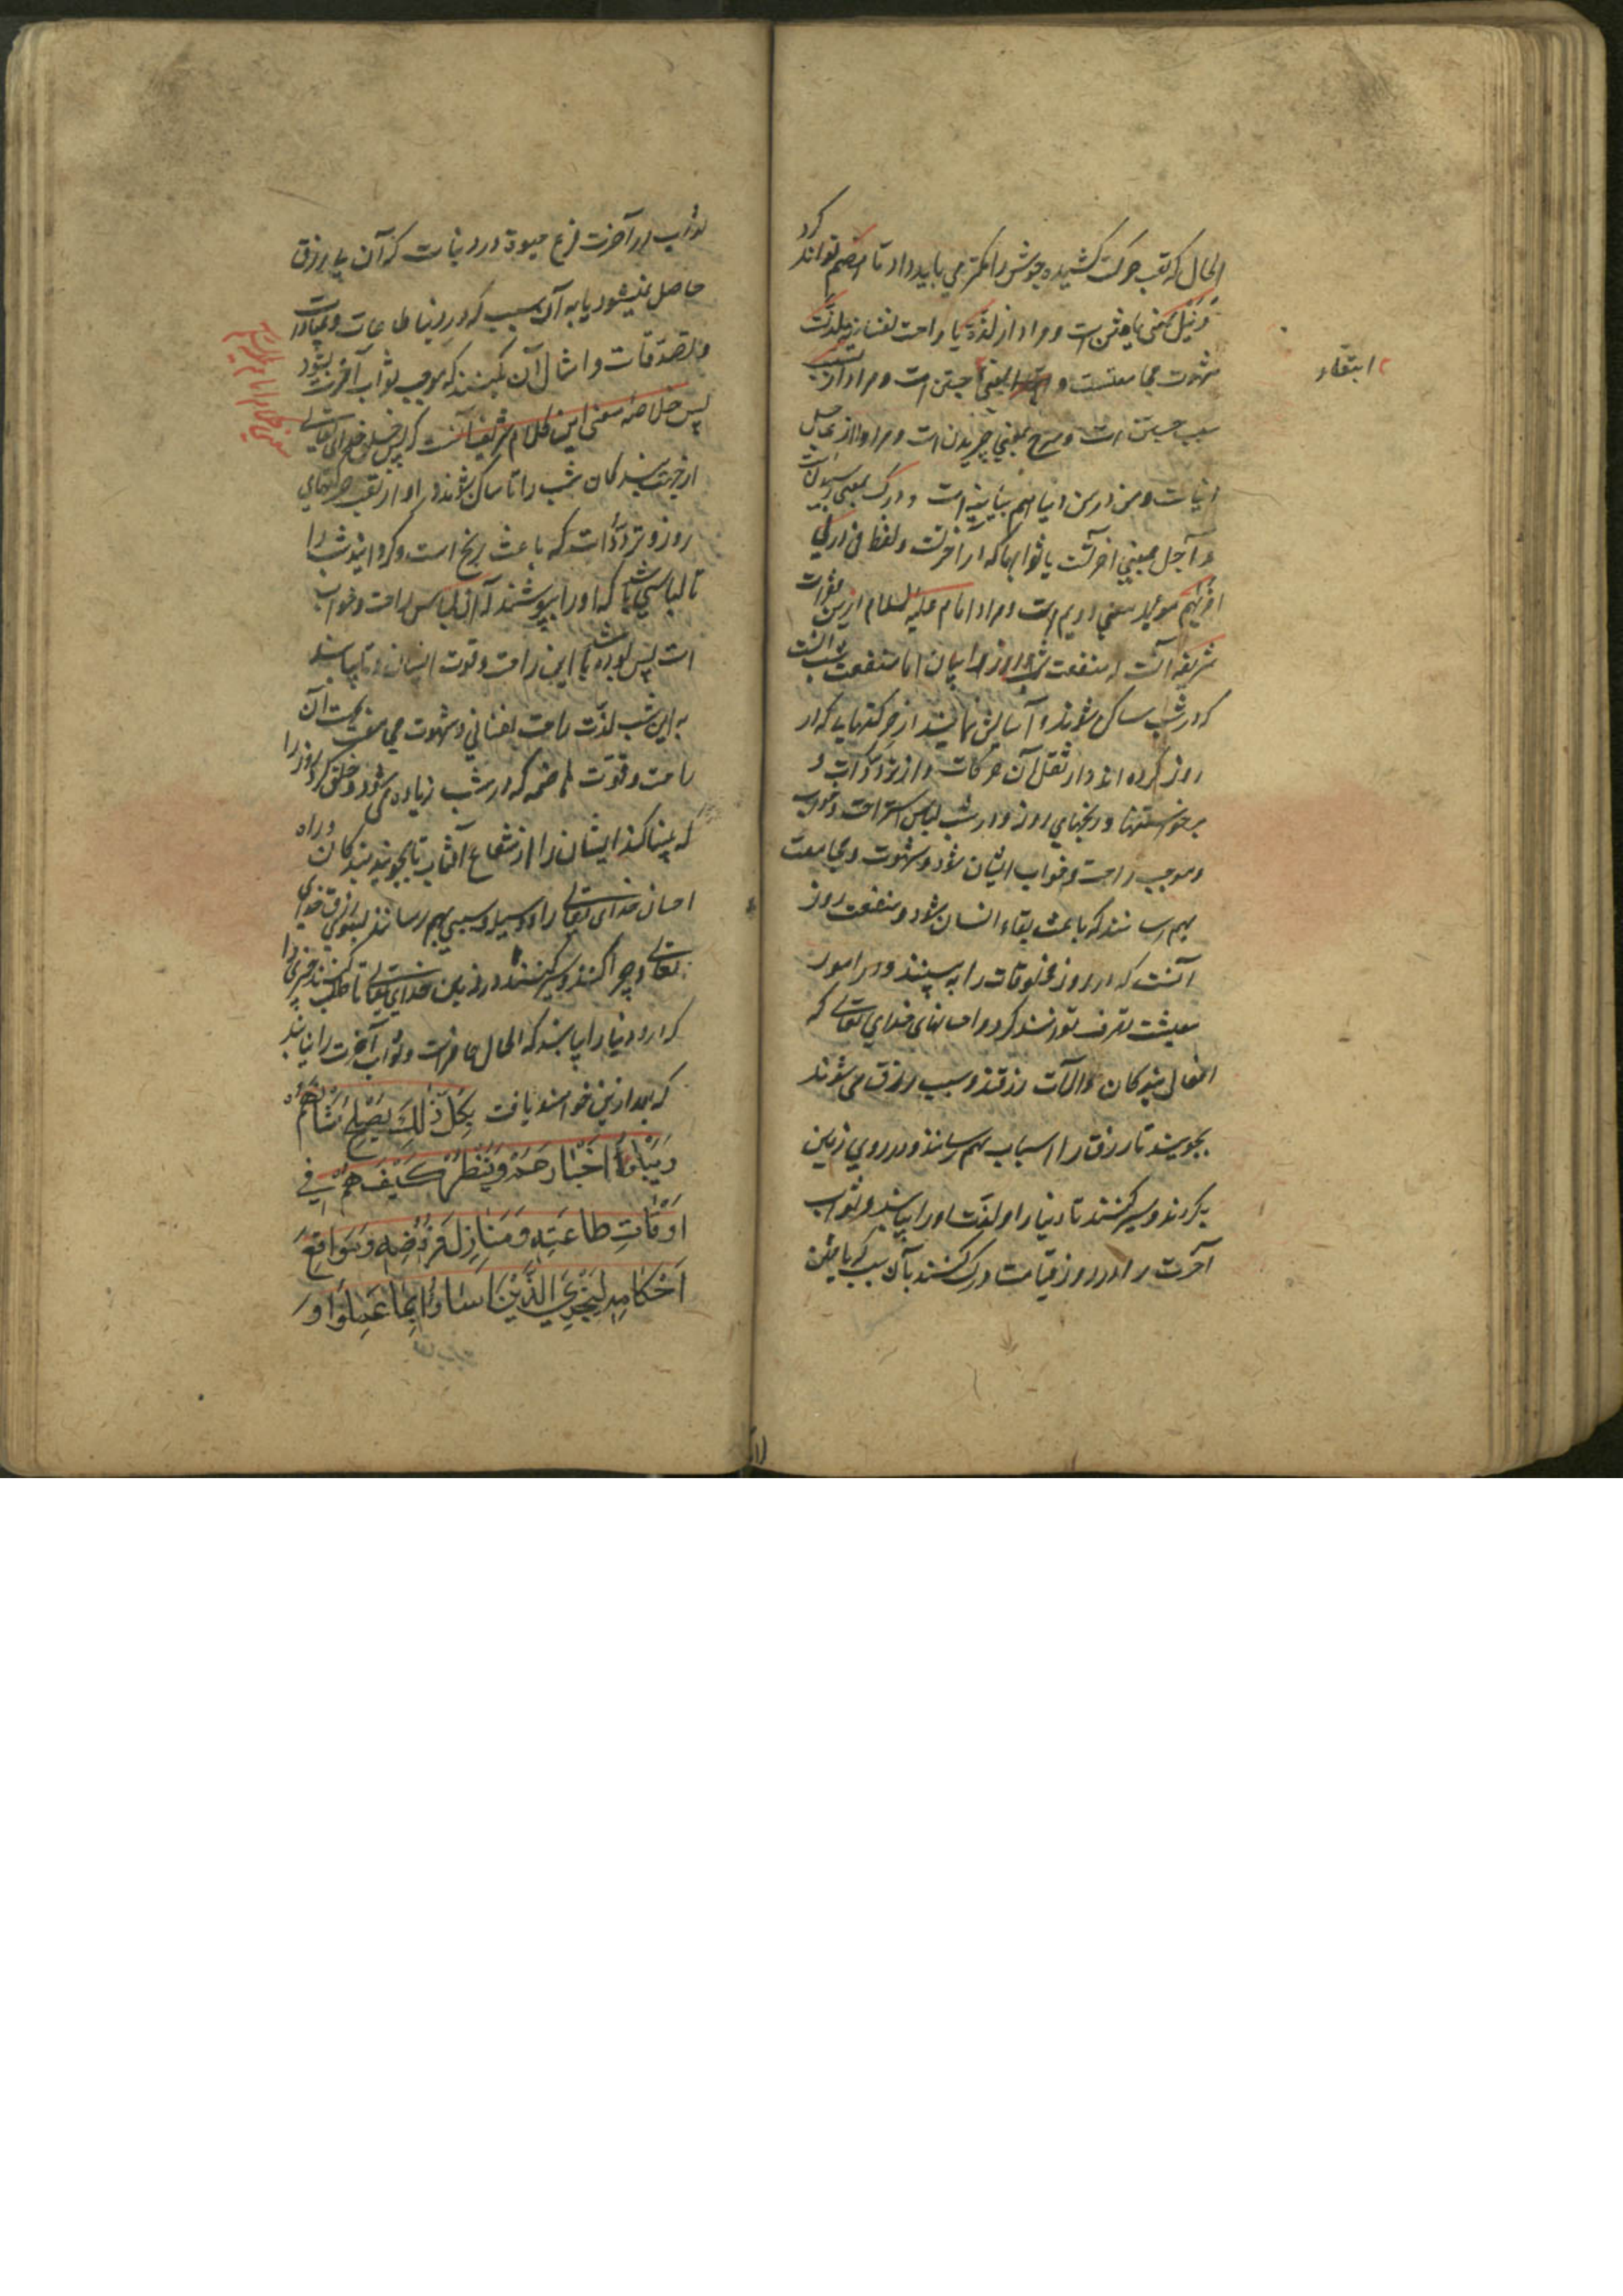 الحال که تعب حرکت کشیده جوش را کمتر می باید داد تا هضم تواند کرد
و نیل بمعنی یافتن است و مراد از لذة یا راحت نفسانیه یا لذت
شهوت مجامعتست و ابتغا بمعنی جستن است و مراد از تسبب
سبب جستن است و سرح بمعنی چریدن است و مراد از عاجل
دنیاست و من در من دنیاهم بیانیه است و درک بمعنی رسیدنست
و آجل بمعنی آخرتست یا ثوابها که در آخرتست و لفظ فی در فی
اخریهم مؤید معنی دویم است و مراد امام علیه السلام ازین فقرات
شریفه آنست که منفعت شب و روز را بیان اما منفعت شب آنست
که در شب ساکن شوند و آسایش نمایند از حرکتهایی که در
روز کرده اند و از ثقل آن حرکات و از تردّدات و
برخواستنها و رنجهای روز و در شب لباس استراحت و خواب
و موجب راحت و خواب ایشان شود و شهوت و مجامعت
بهم رسانند که باعث بقاء انسان شود و منفعت روز
آنست که در روز مخلوقات را به بینند و در امور
معیشت تصرف توانند کرد و احسانهای خدای تعالی که
افعال بندکان و آلات رزقند و سبب رزق می شوند
بجویند تا رزق را اسباب بهم رسانند و در روی زمین
بگردند و سیر کنند تا دنیا را و لذت او را بیابند و ثواب
آخرت را در روز قیامت درک کنند بآن سبب که یافتن
ابتغاء
ثواب در آخرت فرع حیوة در دنیاست که آن بی رزق
حاصل نمیشود یا به آن سبب که در دنیا طاعات و عبادات
و تصدّقات و امثال آن بکنند که موجب ثواب آخرت بشود
پس خلاصهٔ معنی این کلام شریف آنست که پس خلق خدای تعالی
از جهت بندکان شب را تا ساکن شوند در او از تعب حرکتهای
روز و تردّدات که باعث رنج است و کردانید شب را
تا لباسی باشد که او را بپوشند که آن لباس راحت و خواب
است پس بوده باشد این راحت و قوت ایشان و تا بیابند
به این شب لذّت راحت نفسانی و شهوت مجامعت بجهت آن
راحت و قوّت هاضمه که در شب زیاده می شود و خلق کرد روز را
که بینا کند ایشان را از شعاع آفتاب تا بجویند بندکان در او
احسان خدای تعالی را و وسیله و سببی بهم رسانند بسوی رزق خدای
تعالی و چرا کنند و سیر کنند در زمین خدای تعالی تا طلب کنند چیزی را
که در او دنیا را بیابند که الحال حاضر است و ثواب آخرت را بیابند
که بعد ازین خواهند یافت بِكُلِّ ذٰلِكَ يُصْلِحُ شَأْنَهُمْ
وَيَبْلُوا أَخْبَارَهُمْ وَيَنْظُرُ كَيْفَ هُمْ فِي
اَوْقَاتِ طَاعَتِهِ وَمَنَازِلِ فُرُوضِهِ وَمَوَاقِعِ
اَحْكَامِهِ لِيَجْزِيَ الَّذِينَ اَسَاؤُا بِمَا عَمِلُوا وَ